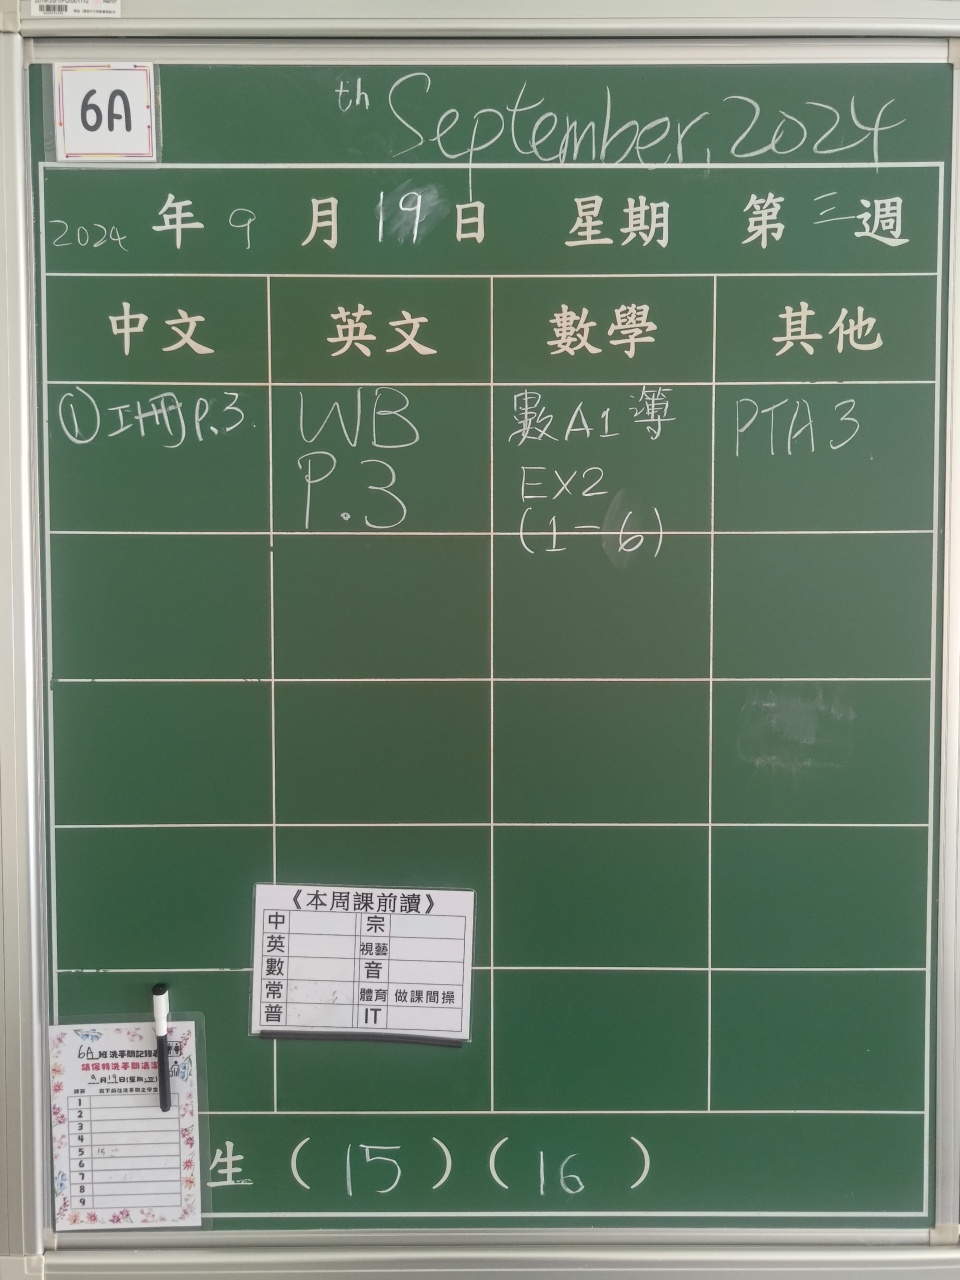 6A
th September, 2024
2024 年 9 月 19 日 星期 第 三 週
中文 英文 數學 其他
① 工冊 P.3. WB 數A1簿 PTA 3.
P.3 EX2
(1-6)
《本周課前讀》
中 宗
英 視藝
數 音
常 體育 做課間操
普 IT
6A 班洗手間記錄
請保持洗手間清潔
9月19日(星期
1
2
3
4
5 15
6
7
8
9
生 ( 15 ) ( 16 )